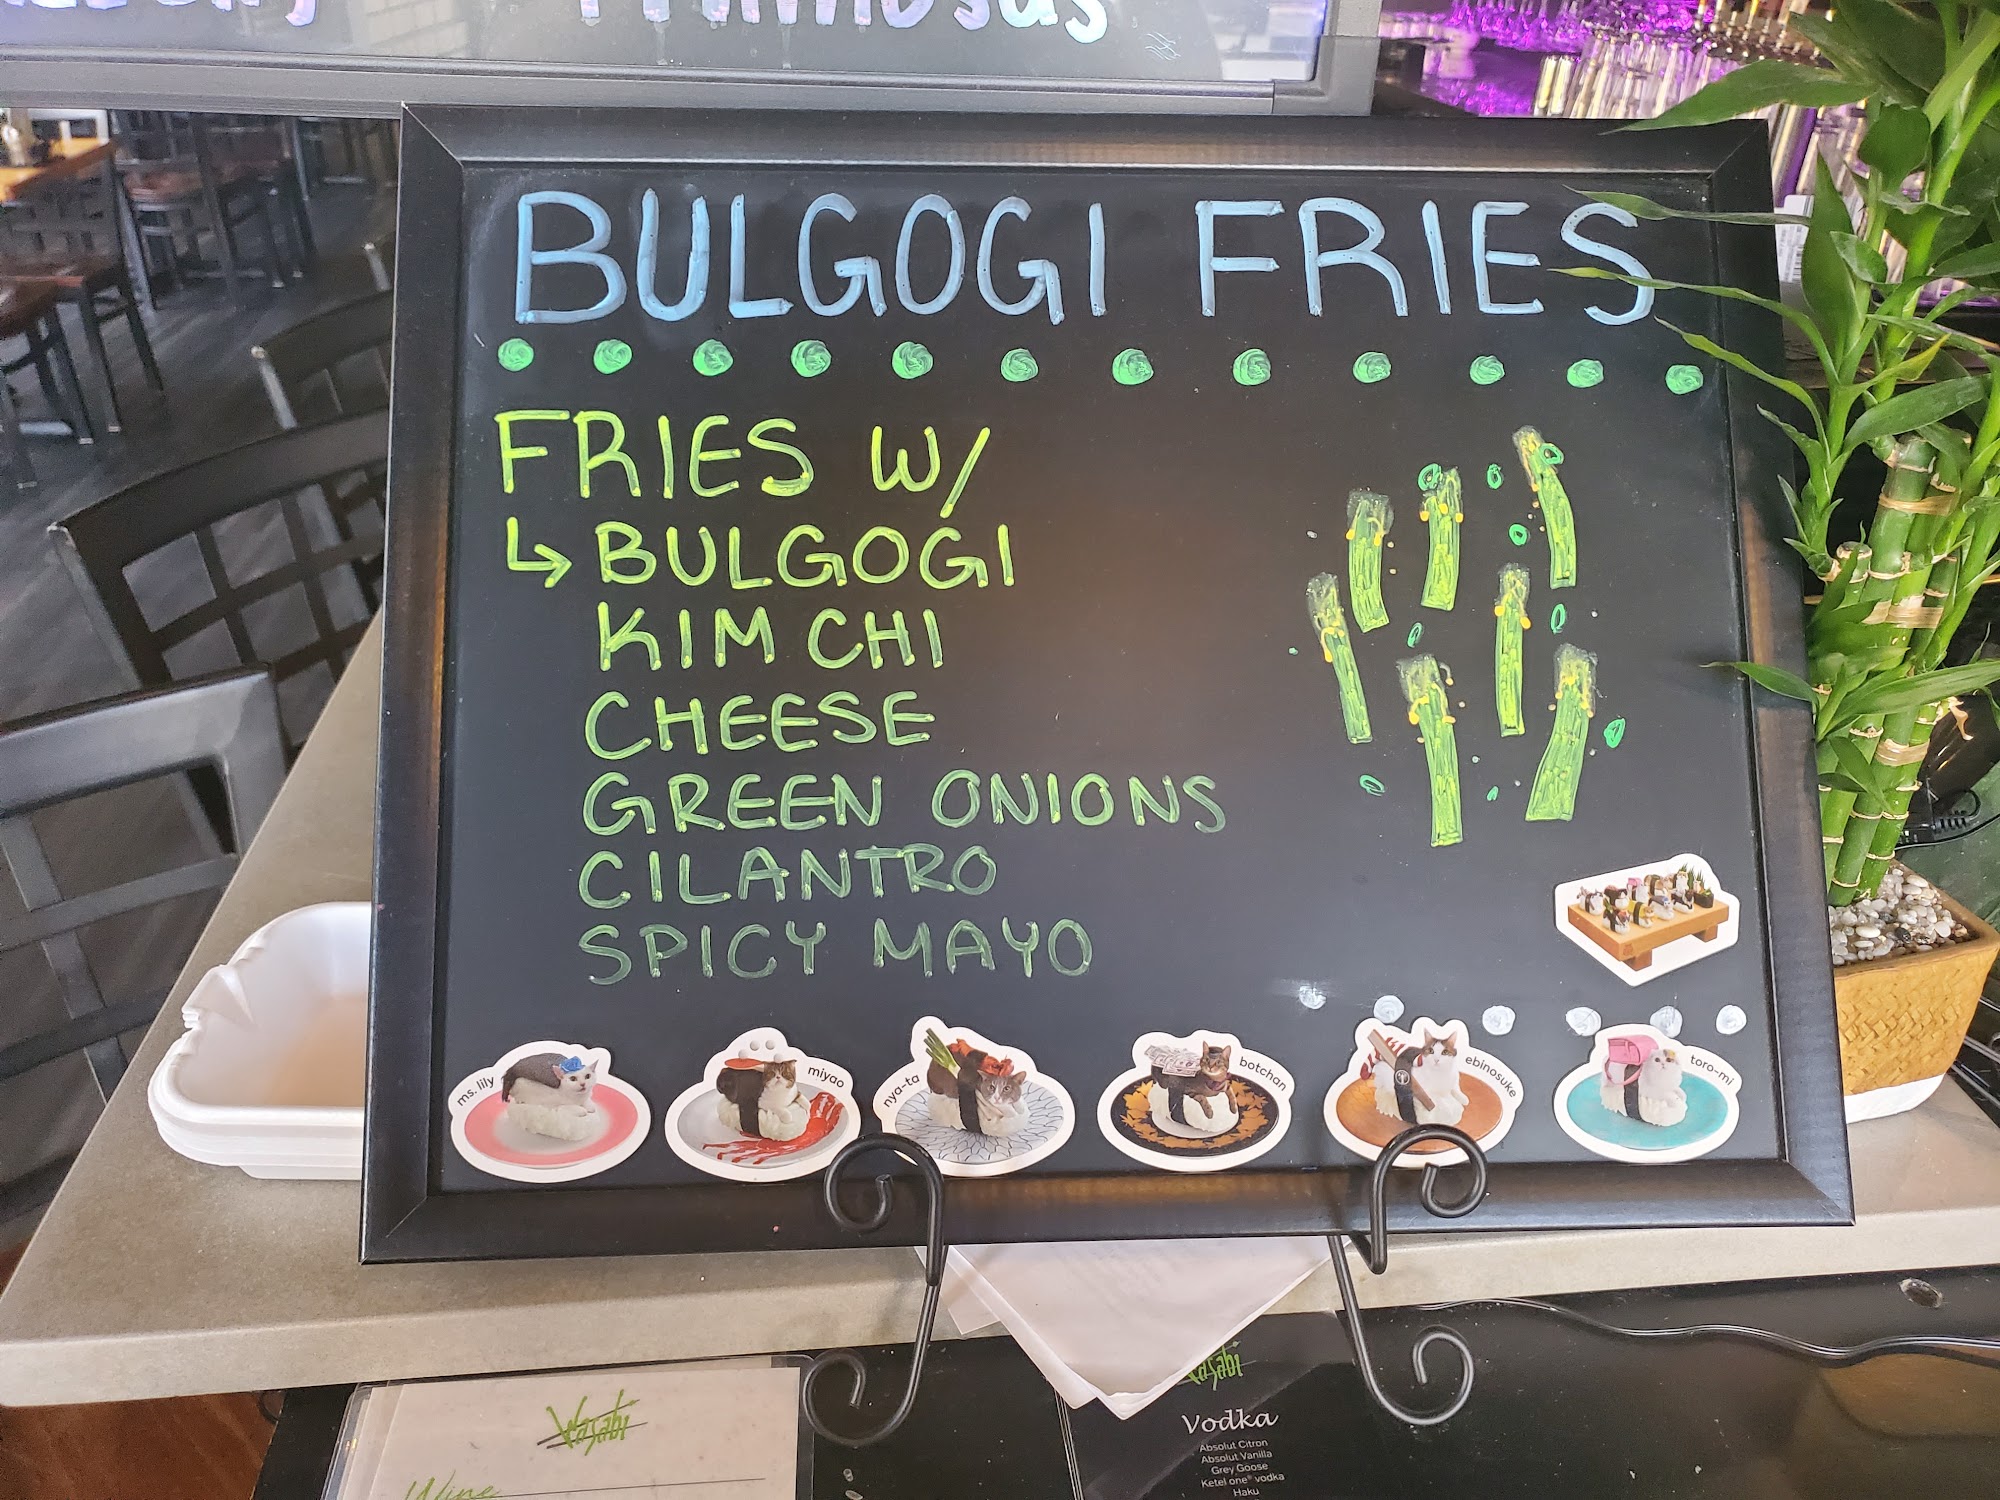 Mimosas
BULGOGI FRIES
FRIES W/
↳ BULGOGI
KIM CHI
CHEESE
GREEN ONIONS
CILANTRO
SPICY MAYO
ms. lily
miyao
nya-ta
botchan
ebinosuke
toro-mi
Wasabi
Wine
Wasabi
Vodka
Absolut Citron
Absolut Vanilla
Grey Goose
Ketel one® vodka
Haku